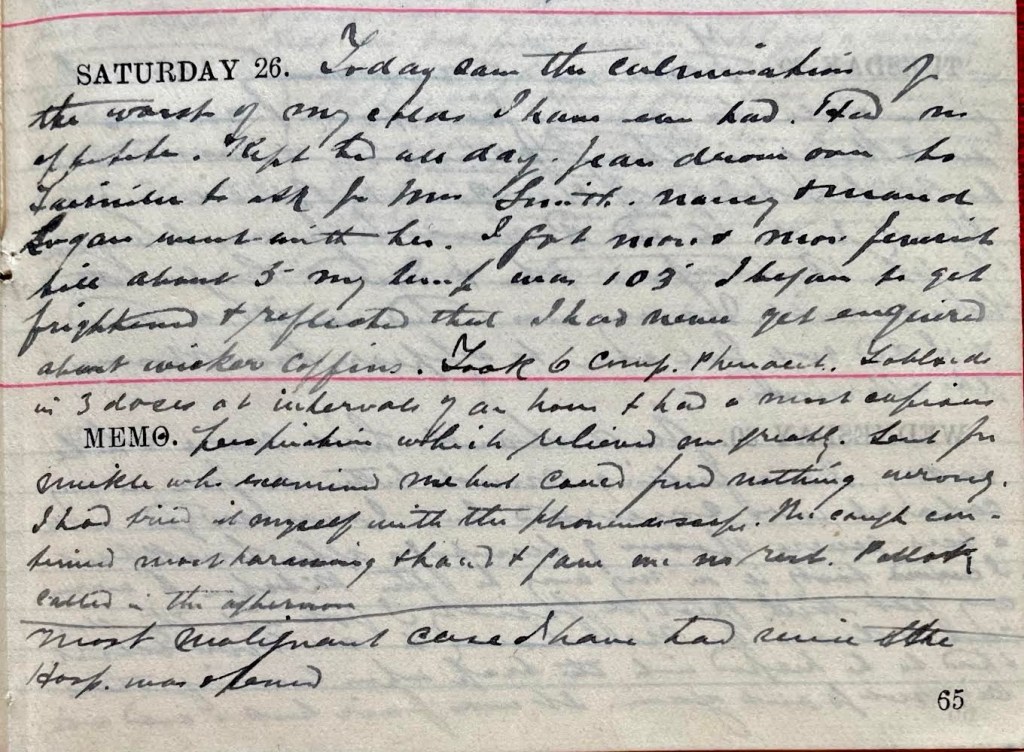 SATURDAY 26. Today saw the culmination of
the worst of my colds I have ever had. Had no
appetite. Kept bed all day. Jean drove over to
to ask for Mrs Smith. Nancy & Maud
Logan went with her. I got more & more feverish
till about 5 my temp was 103 I began to get
frightened & reflected that I had never yet enquired
about wicker coffins. Took 6 Comp. Phenacet. Tabloids
in 3 doses at intervals of an hour & had a most copious
MEMO. perspiration which relieved me greatly. Sent for
who examined me but could find nothing wrong.
I had tried it myself with the phonendoscope. The cough con-
tinued most harassing & hard & gave me no rest. Pollok
called in the afternoon
most malignant case I have had since the
Hosp. was opened
65